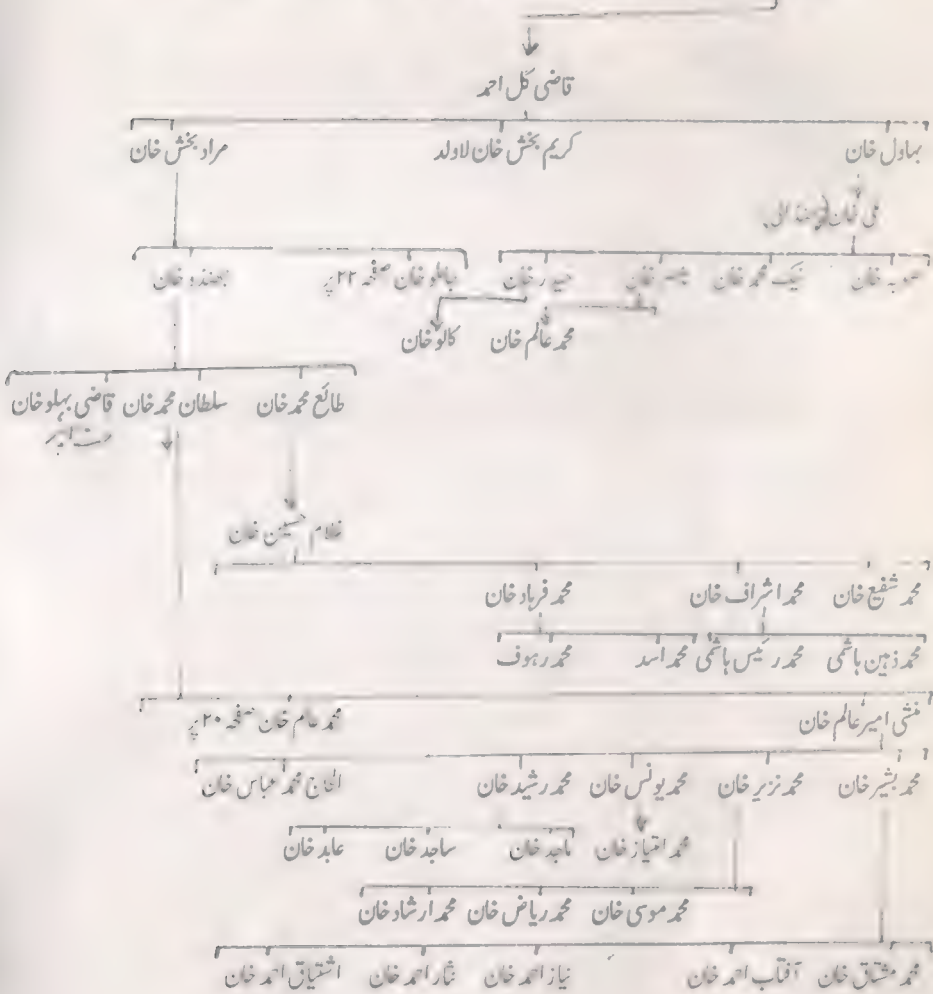 قاضی گل احمد
بہاول خان کریم بخش خان لاولد مراد بخش خان
خان
صوبہ خان نیک محمد خان خان خان جالو خان صفحہ ۲۲ پر جھنڈو خان
محمد عالم خان کالو خان
طائع محمد خان سلطان محمد خان قاضی بہلو خان
غلام حسین خان
محمد شفیع خان محمد اشراف خان محمد فرہاد خان
محمد ذہین ہاشمی محمد رئیس ہاشمی محمد اسد محمد رہوف
منشی امیر عالم خان محمد عالم خان صفحہ ۲۰ پر
محمد بشیر خان محمد نزیر خان محمد یونس خان محمد رشید خان الحاج محمد عباس خان
محمد امتیاز خان ماجد خان ساجد خان عابد خان
محمد موسی خان محمد ریاض خان محمد ارشاد خان
محمد مشتاق خان آفتاب احمد خان نیاز احمد خان نثار احمد خان اشتیاق احمد خان